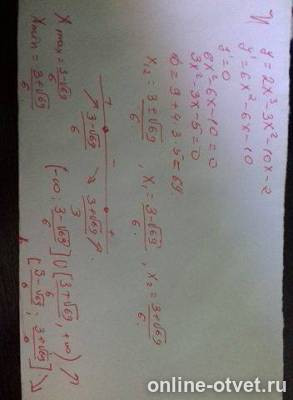 y = 2x³-3x²-10x-2
y' = 6x²-6x-10
y' = 0
6x²-6x-10=0
3x²-3x-5=0
D = 9+4·3·5=69
x₂ = 3+√69/6, x₁ = 3-√69/6, x₂ = 3+√69/6
+ - +
3-√69/6 3+√69/6
X max = 3-√69/6 (-∞; 3-√69/6]∪[3+√69/6; +∞) ↗
X min = 3+√69/6 [3-√69/6; 3+√69/6] ↘
online-otvet.ru